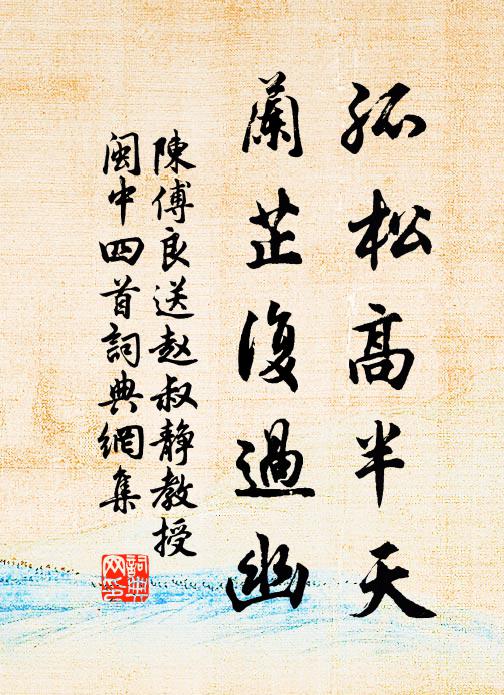 孤松高半天
蘭芷復過幽
陳傅良送赵叔静教授
閩中四首詞典網集
詞典網集